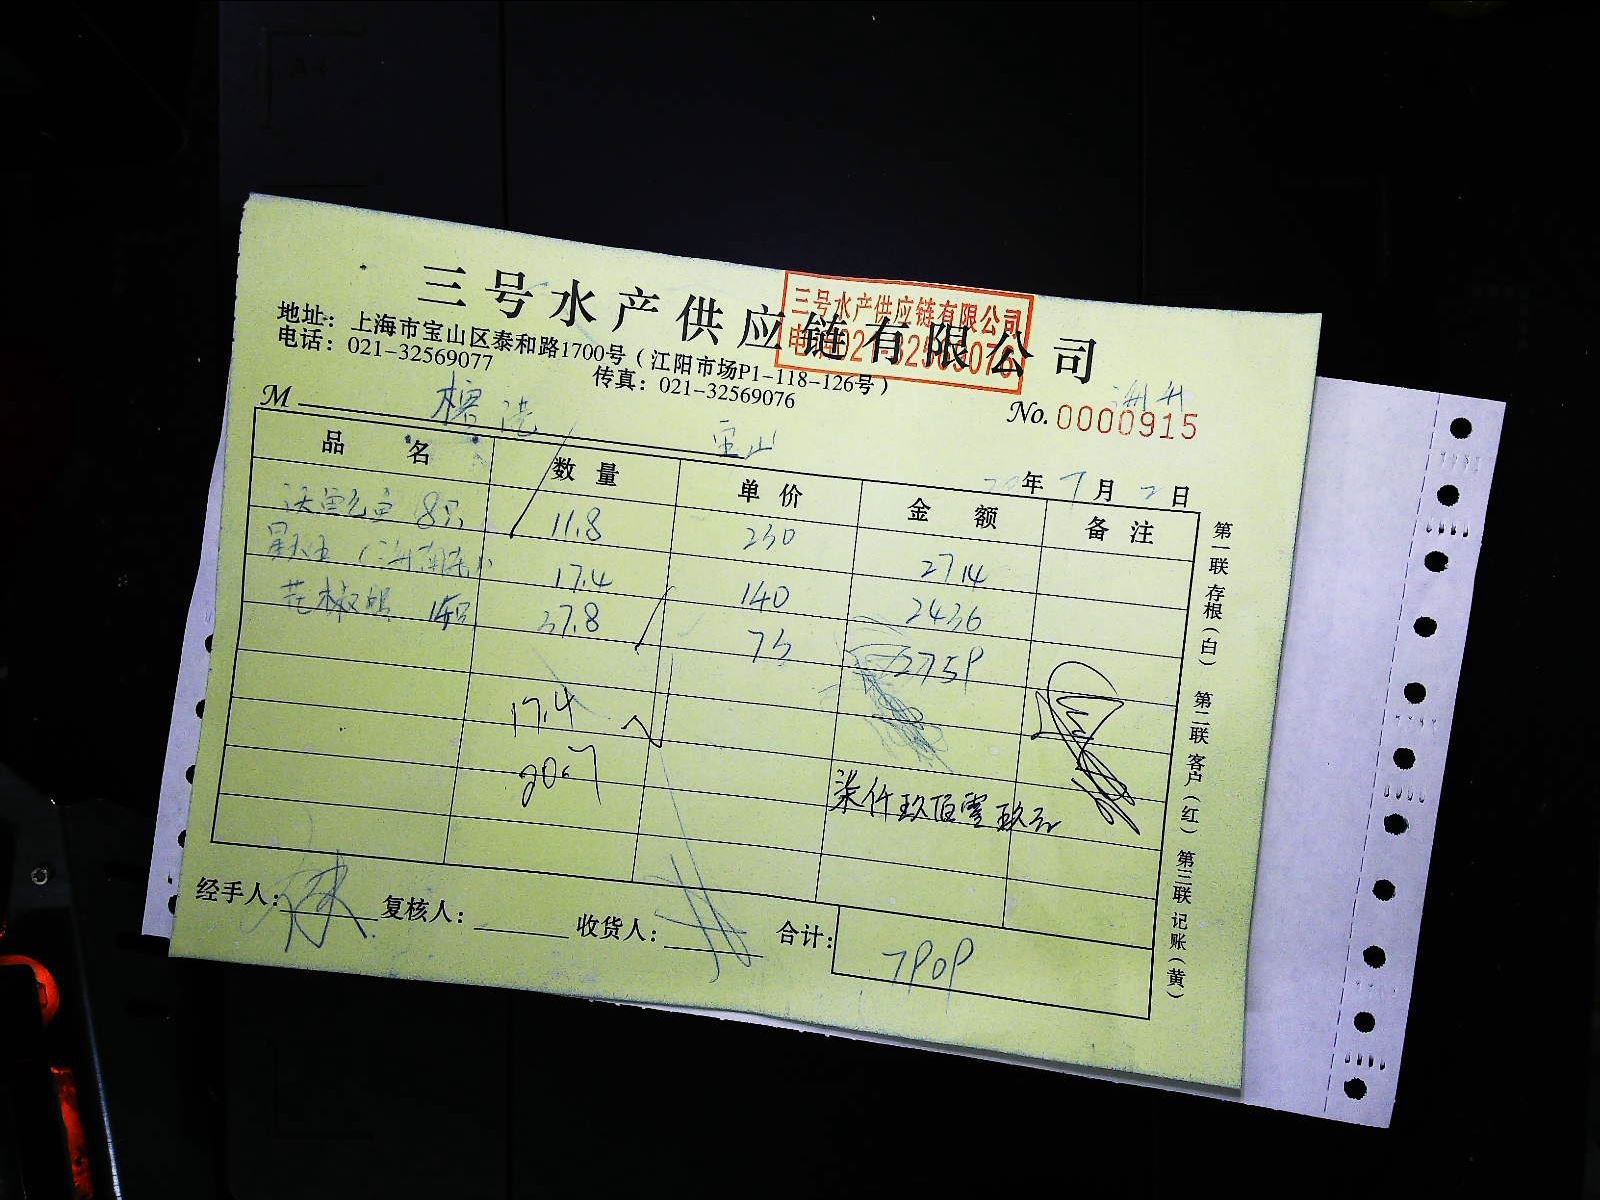 三号水产供应链有限公司
三号水产供应链有限公司
电话021-32569076
地址：上海市宝山区泰和路1700号（江阳市场P1-118-126号）
电话：021-32569077 传真：021-32569076
M
宝山
No. 0000915
年 7 月 2 日
品名 数量 单价 金额 备注
8只 11.8 230 2714
17.4 140 2436
花椒 37.8 73 2759
17.4
20.7
柒仟玖佰零玖元
经手人： 复核人： 收货人： 合计： 7909
第一联 存根（白） 第二联 客户（红） 第三联 记账（黄）